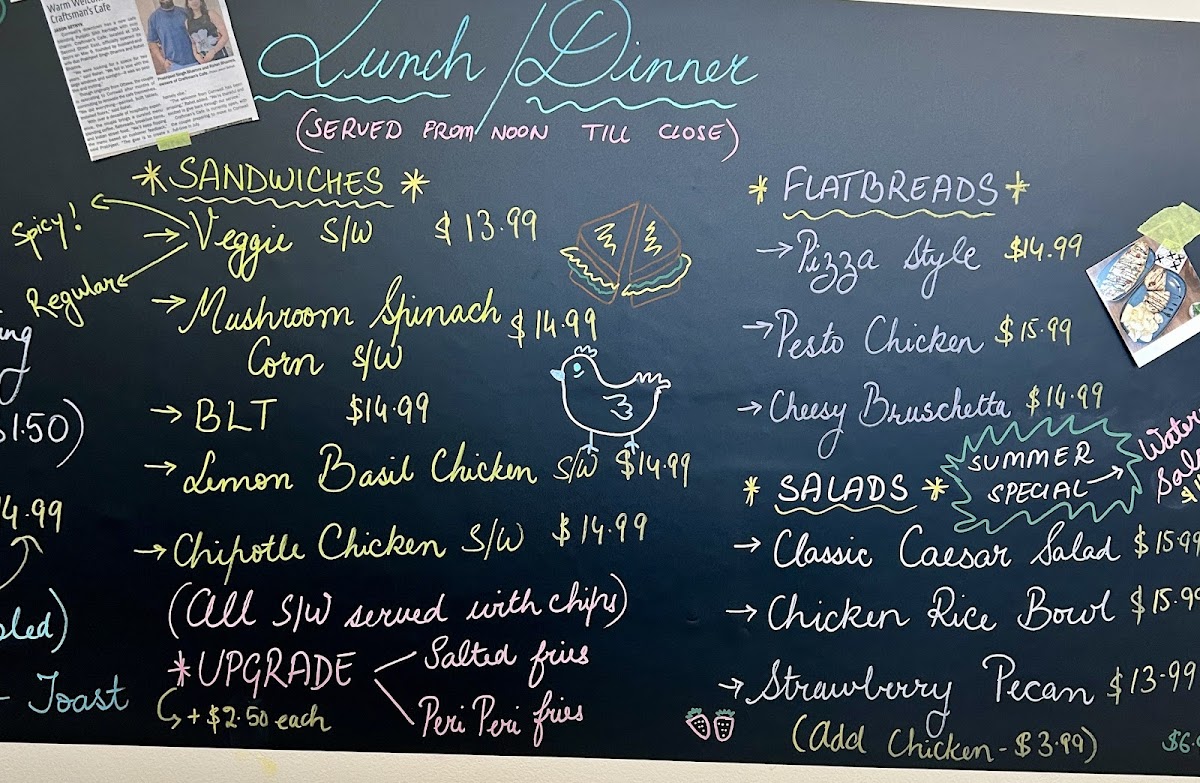 Warm Welco
Craftsman's Cafe
Lunch / Dinner
(SERVED FROM NOON TILL CLOSE)
* SANDWICHES *
Spicy!
Regular
→ Veggie S/W $13.99
→ Mushroom Spinach
Corn S/W $14.99
→ BLT $14.99
→ Lemon Basil Chicken S/W $14.99
→ Chipotle Chicken S/W $14.99
(All S/W served with chips)
* UPGRADE
Salted fries
Peri Peri fries
↳ + $2.50 each
* FLATBREADS *
→ Pizza Style $14.99
→ Pesto Chicken $15.99
→ Cheesy Bruschetta $14.99
* SALADS *
SUMMER
SPECIAL →
Water
→ Classic Caesar Salad $15.99
→ Chicken Rice Bowl $15.9
→ Strawberry Pecan $13.99
(Add Chicken - $3.99)
1.50)
4.99
Toast